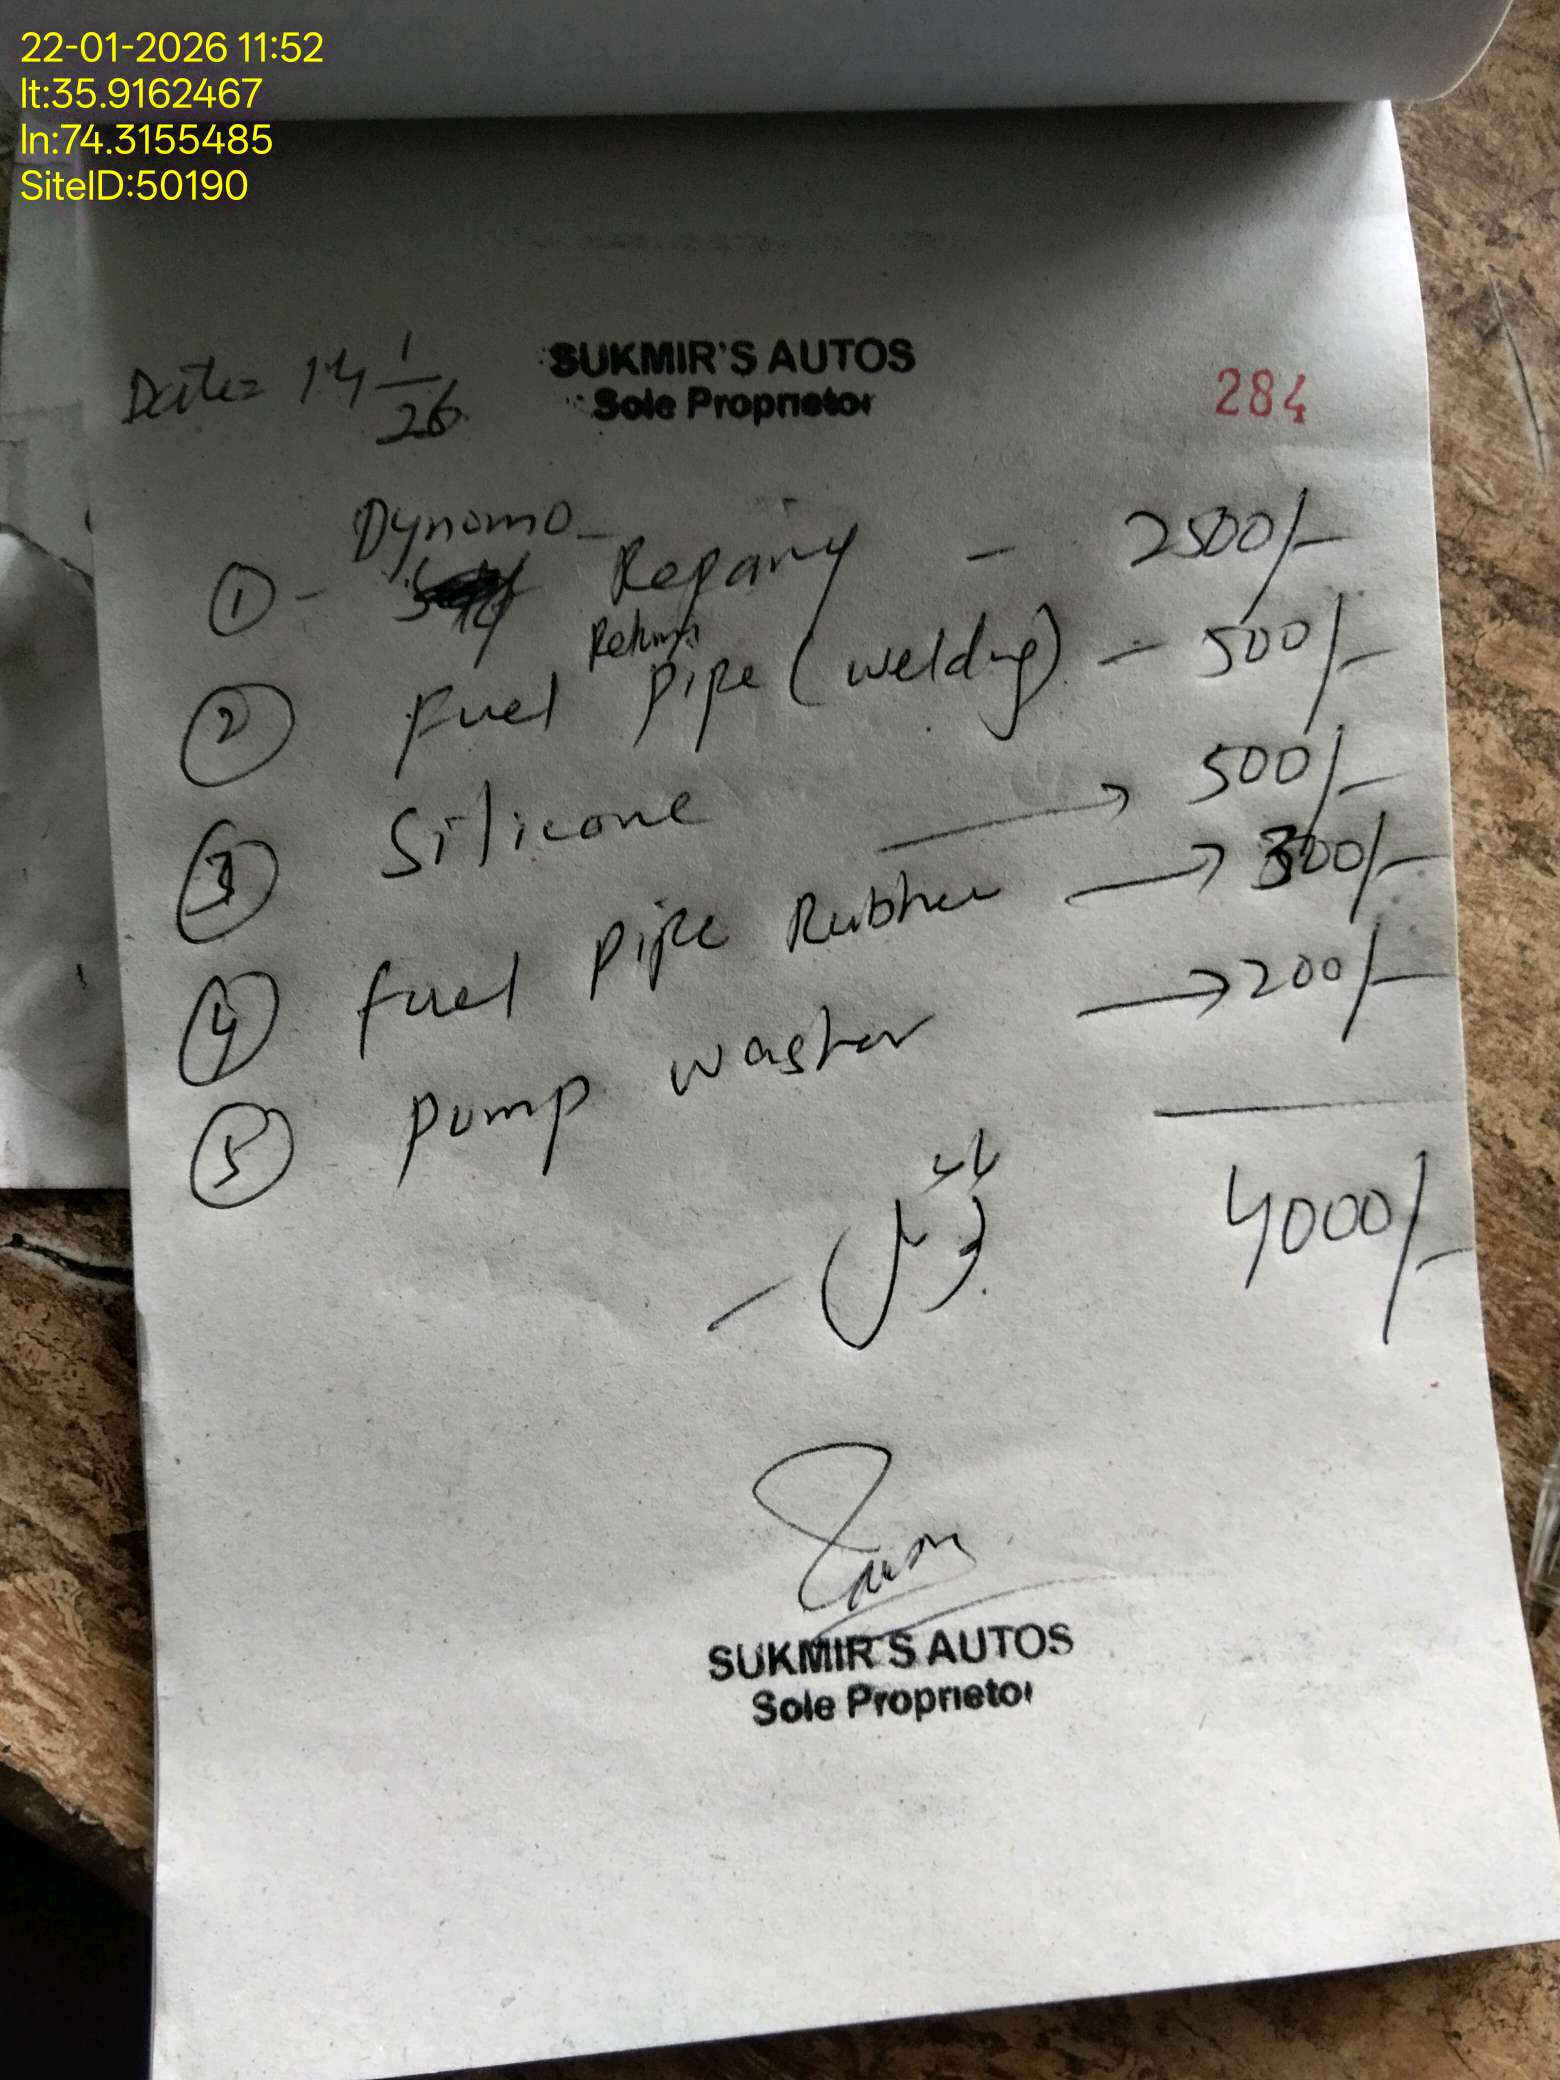 22-01-2026 11:52
lt:35.9162467
ln:74.3155485
SiteID:50190
SUKMIR'S AUTOS
Sole Proprietor
Date= 14 1/26
284
① - Dynomo - Repairy - 2500/-
② Fuel Return Pipe (welding) - 500/-
③ Silicone → 500/-
④ Fuel Pipe Rubber → 300/-
⑤ Pump washer → 200/-
4000/-
SUKMIR'S AUTOS
Sole Proprietor